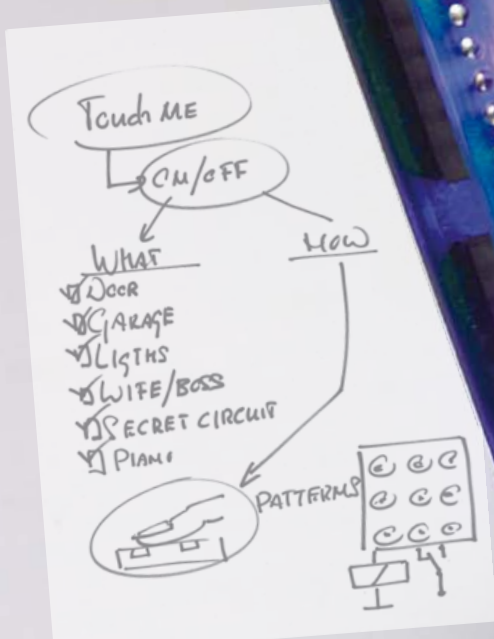 Touch ME
ON/OFF
WHAT
HOW
DOOR
GARAGE
LIGTHS
WIFE/BOSS
SECRET CIRCUIT
PIANO
PATTERNS